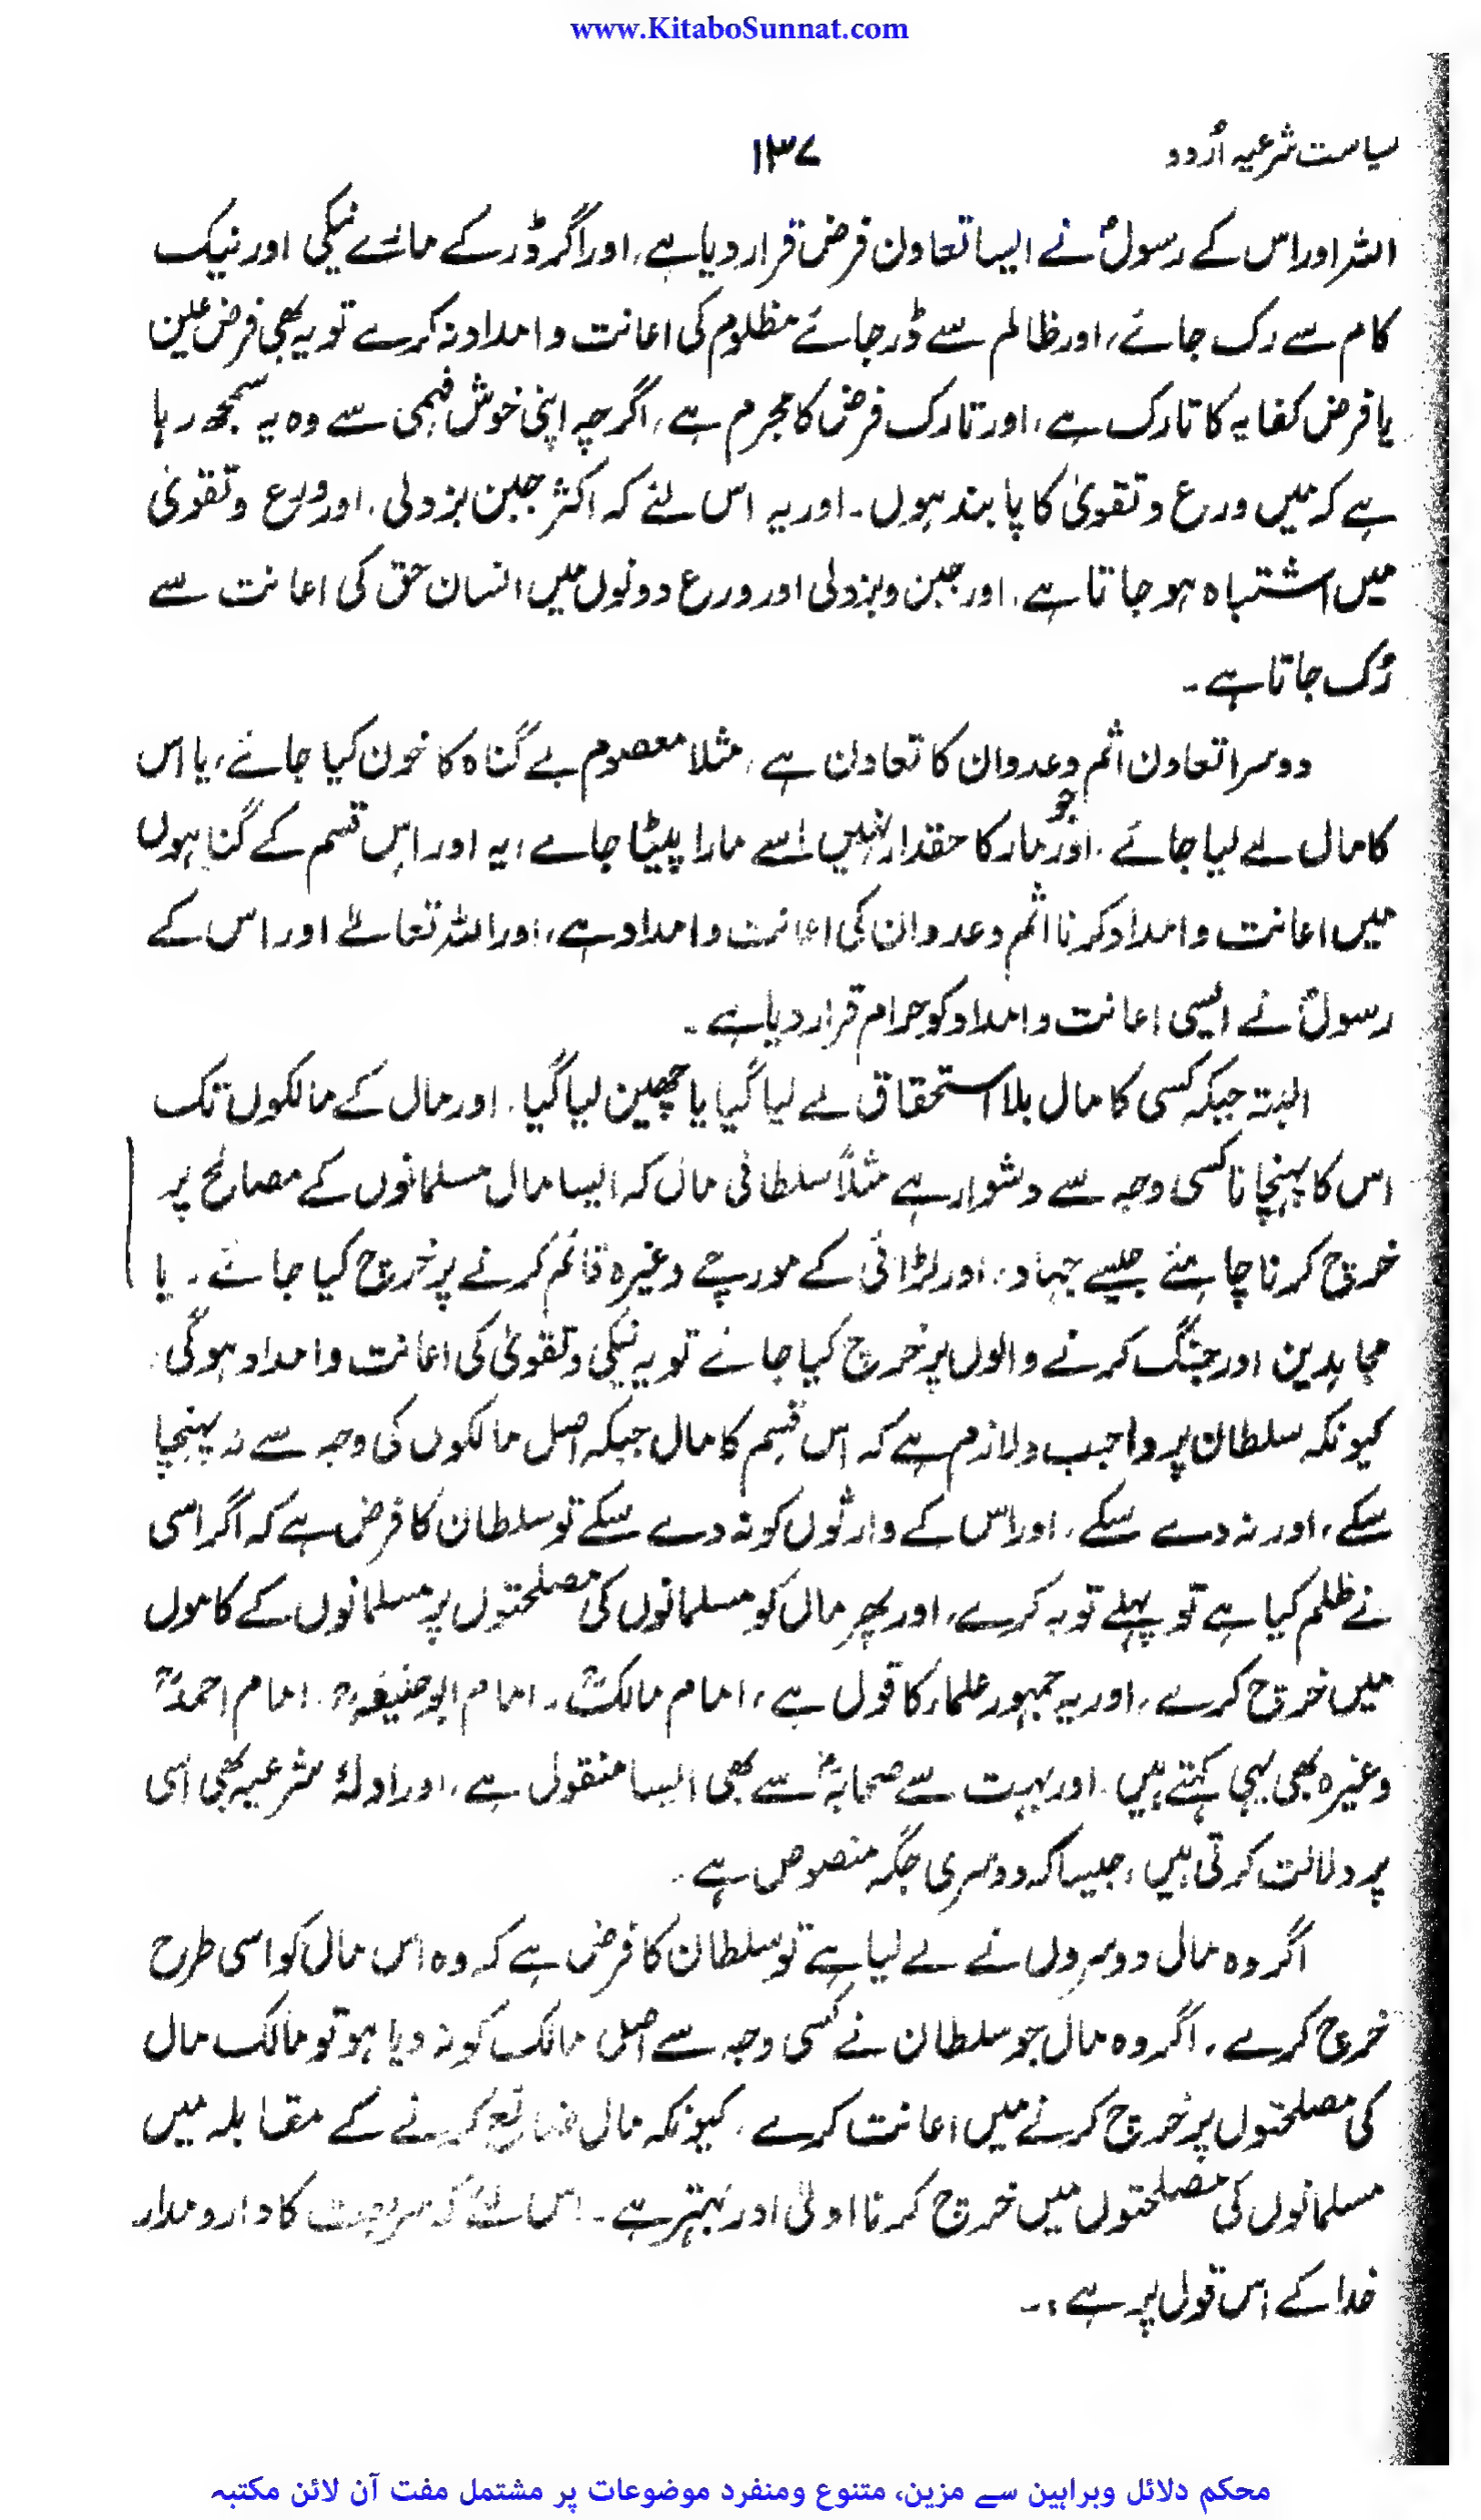 www.KitaboSunnat.com
سیاست شرعیہ اُردو
۱۳۷
اللہ اور اس کے رسولؐ نے ایسا تعاون فرض قرار دیا ہے، اور اگر ڈر کے مارے نیکی اور نیک
کام سے رک جائے، اور ظالم سے ڈر جائے مظلوم کی اعانت و امداد نہ کرے تو یہ بھی فرض عین
یا فرض کفایہ کا تارک ہے، اور تارک فرض کا مجرم ہے، اگرچہ اپنی خوش فہمی سے وہ یہ سمجھ رہا
ہے کہ میں ورع و تقویٰ کا پابند ہوں۔ اور یہ اس لئے کہ اکثر جبن بزدلی، اور ورع و تقویٰ
میں اشتباہ ہو جاتا ہے، اور جبن و بزدلی اور ورع دونوں میں انسان حق کی اعانت سے
رُک جاتا ہے۔
دوسرا تعاون اثم و عدوان کا تعاون ہے، مثلا معصوم بے گناہ کا خون کیا جائے، یا اس
کا مال لے لیا جائے، اور جو مار کا حقدار نہیں اسے مارا پیٹا جاے، یہ اور اس قسم کے گناہوں
میں اعانت و امداد کرنا اثم و عدوان کی اعانت و امداد ہے، اور اللہ تعالےٰ اور اس کے
رسولؐ نے ایسی اعانت و امداد کو حرام قرار دیا ہے۔
البتہ جبکہ کسی کا مال بلا استحقاق لے لیا گیا یا چھین لیا گیا، اور مال کے مالکوں تک
اس کا پہنچانا کسی وجہ سے دشوار ہے مثلاً سلطانی مال کہ ایسا مال مسلمانوں کے مصالح پر
خرچ کرنا چاہئے جیسے جہاد، اور لڑائی کے مورچے وغیرہ قائم کرنے پر خرچ کیا جائے۔ یا
مجاہدین اور جنگ کرنے والوں پر خرچ کیا جائے تو یہ نیکی و تقویٰ کی اعانت و امداد ہوگی،
کیونکہ سلطان پر واجب و لازم ہے کہ اس قسم کا مال جبکہ اصل مالکوں کی وجہ سے نہ پہنچا
سکے، اور نہ دے سکے، اور اس کے وارثوں کو نہ دے سکے تو سلطان کا فرض ہے کہ اگر اسی
نے ظلم کیا ہے تو پہلے توبہ کرے، اور پھر مال کو مسلمانوں کی مصلحتوں پر مسلمانوں کے کاموں
میں خرچ کرے، اور یہ جمہور علماء کا قول ہے، امام مالکؒ۔ امام ابوحنیفہؒ، امام احمدؒ
وغیرہ بھی یہی کہتے ہیں۔ اور بہت سے صحابہؓ سے بھی ایسا منقول ہے، اور ادلۂ شرعیہ بھی اسی
پر دلالت کرتی ہیں، جیسا کہ دوسری جگہ منصوص ہے۔
اگر وہ مال دوسروں نے لے لیا ہے تو سلطان کا فرض ہے کہ وہ اس مال کو اسی طرح
خرچ کرے، اگر وہ مال جو سلطان نے کسی وجہ سے اصل مالک کو نہ دیا ہو تو مالک مال
کی مصلحتوں پر خرچ کرنے میں اعانت کرے، کیونکہ مال ضائع کرنے کے مقابلہ میں
مسلمانوں کی مصلحتوں میں خرچ کرنا اولیٰ اور بہتر ہے۔ اس لئے کہ شریعت کا دارومدار
خدا کے اس قول پر ہے:۔
محکم دلائل وبراہین سے مزین، متنوع ومنفرد موضوعات پر مشتمل مفت آن لائن مکتبہ